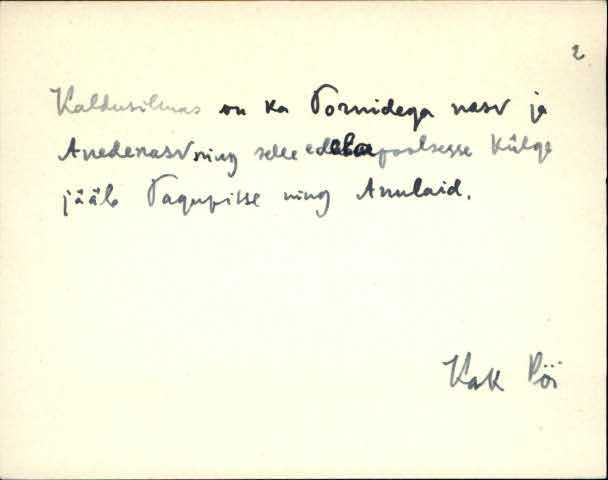 2
Kaldusilmas on ka Tornidega nasv ja
Anedenasv ning selle edelapoolsesse külge
jääb Tagupisse ning Annlaid.
Kak Pöi